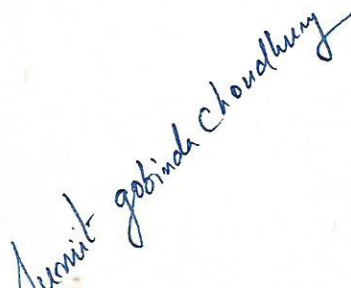 Sumit gobinda Choudhury